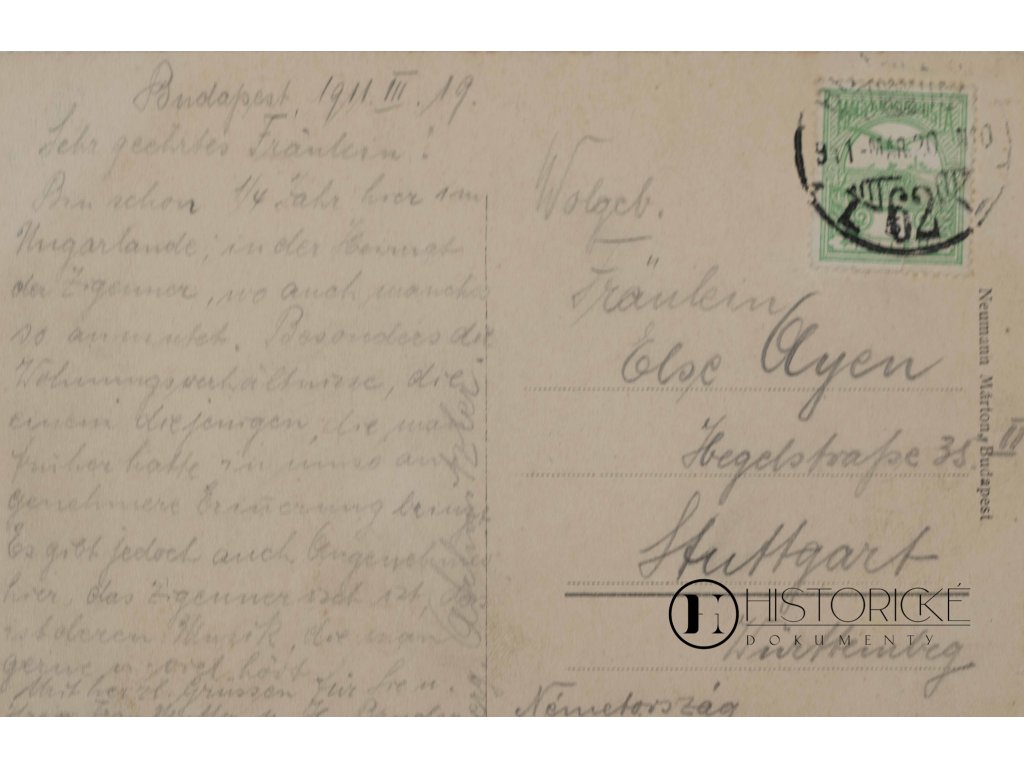 Budapest, 1911. III. 19.
Sehr geehrtes Fräulein!
Bin schon 1/4 Jahr hier im
Ungarlande, in der Heimat
der Zigeuner, wo auch manches
so anmutet. Besonders die
Wohnungsverhältnisse, die
einem diejenigen, die man
früher hatte in umso an
genehmere Erinnerung bringt
Es gibt jedoch auch Angenehmes
hier, das Zigeuner
Musik, die man
gerne u. viel hört.
Mit herzl. Grüssen für Sie u.
Wolgeb.
Fräulein
Else Ayen
Hegelstraße 38 III
Stuttgart
Württemberg
Németország
911 MAR 20
62
Neumann Márton, Budapest
HISTORICKÉ
DOKUMENTY